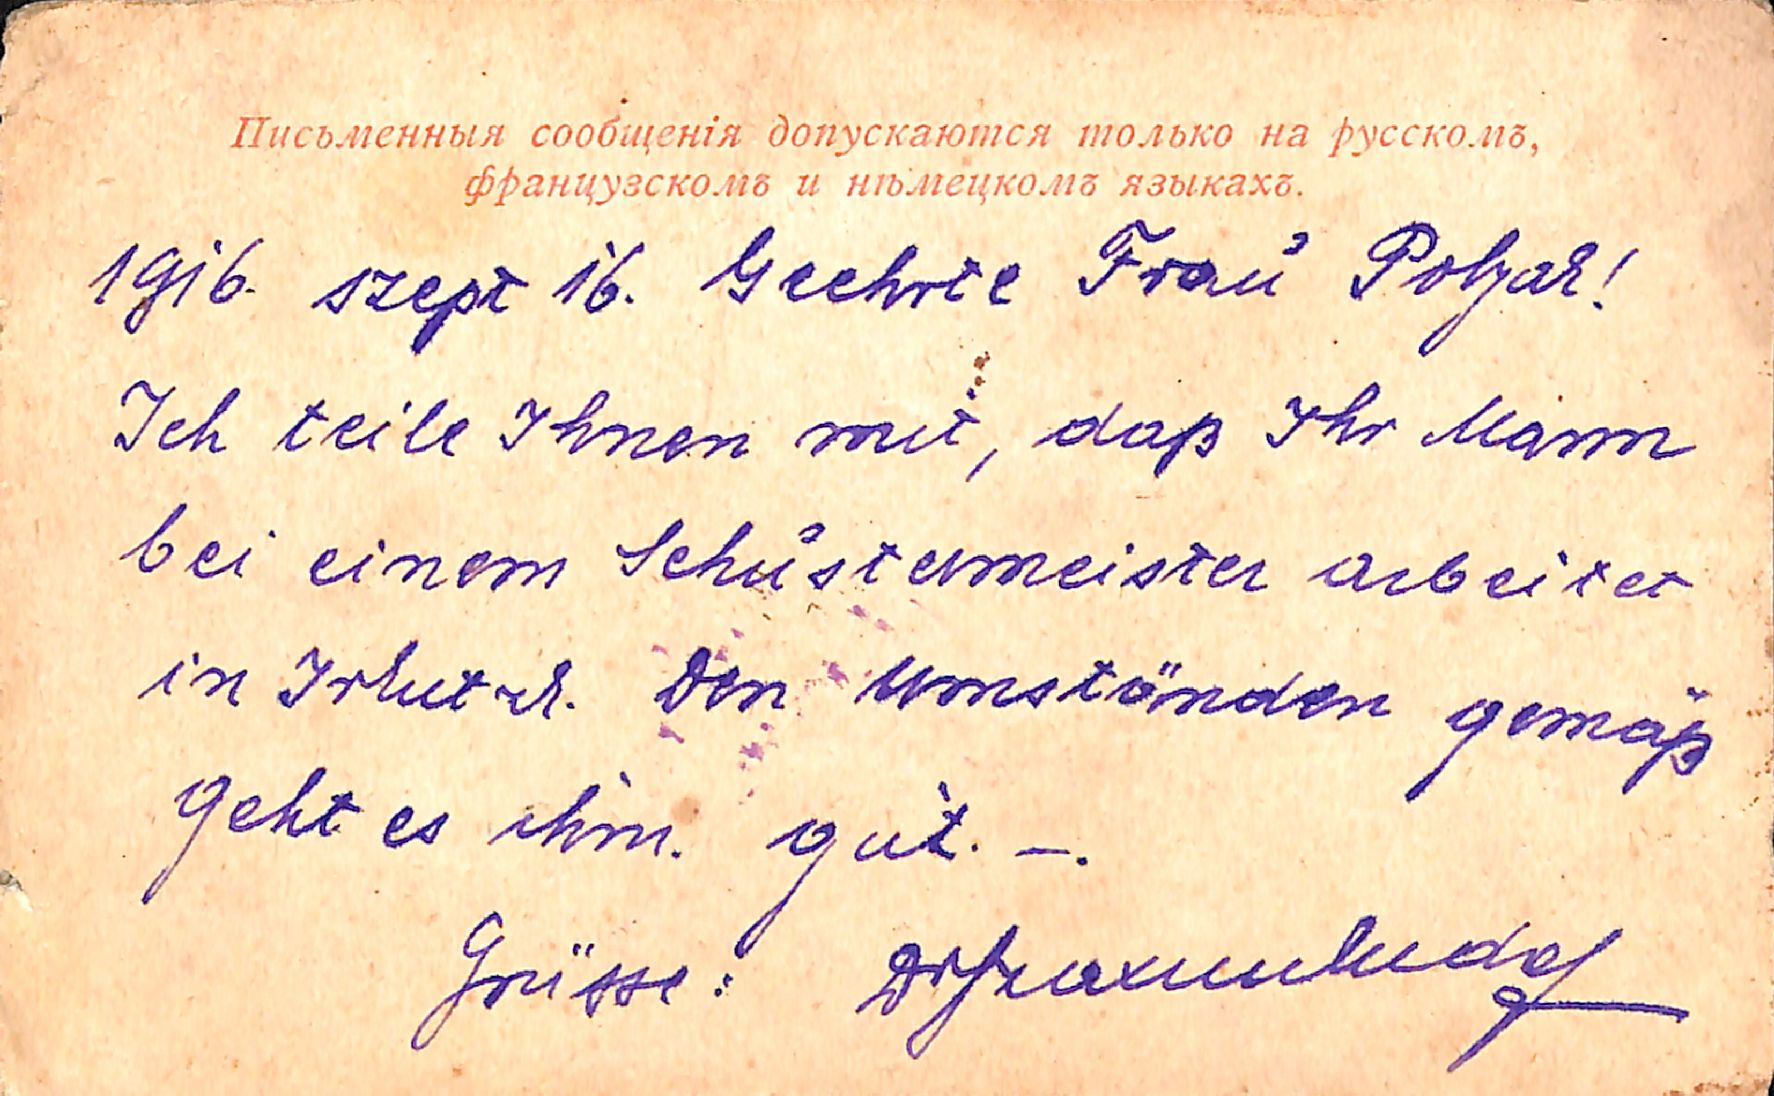 Письменныя сообщенія допускаются только на русскомъ,
французскомъ и нѣмецкомъ языкахъ.
1916. szept 16. Geehrte Frau
Ich teile Ihnen mit, daß Ihr Mann
bei einem Schustermeister arbeitet
in Irkutzk. Den Umständen gemäß
geht es ihm. gut. –.
Grüsse: